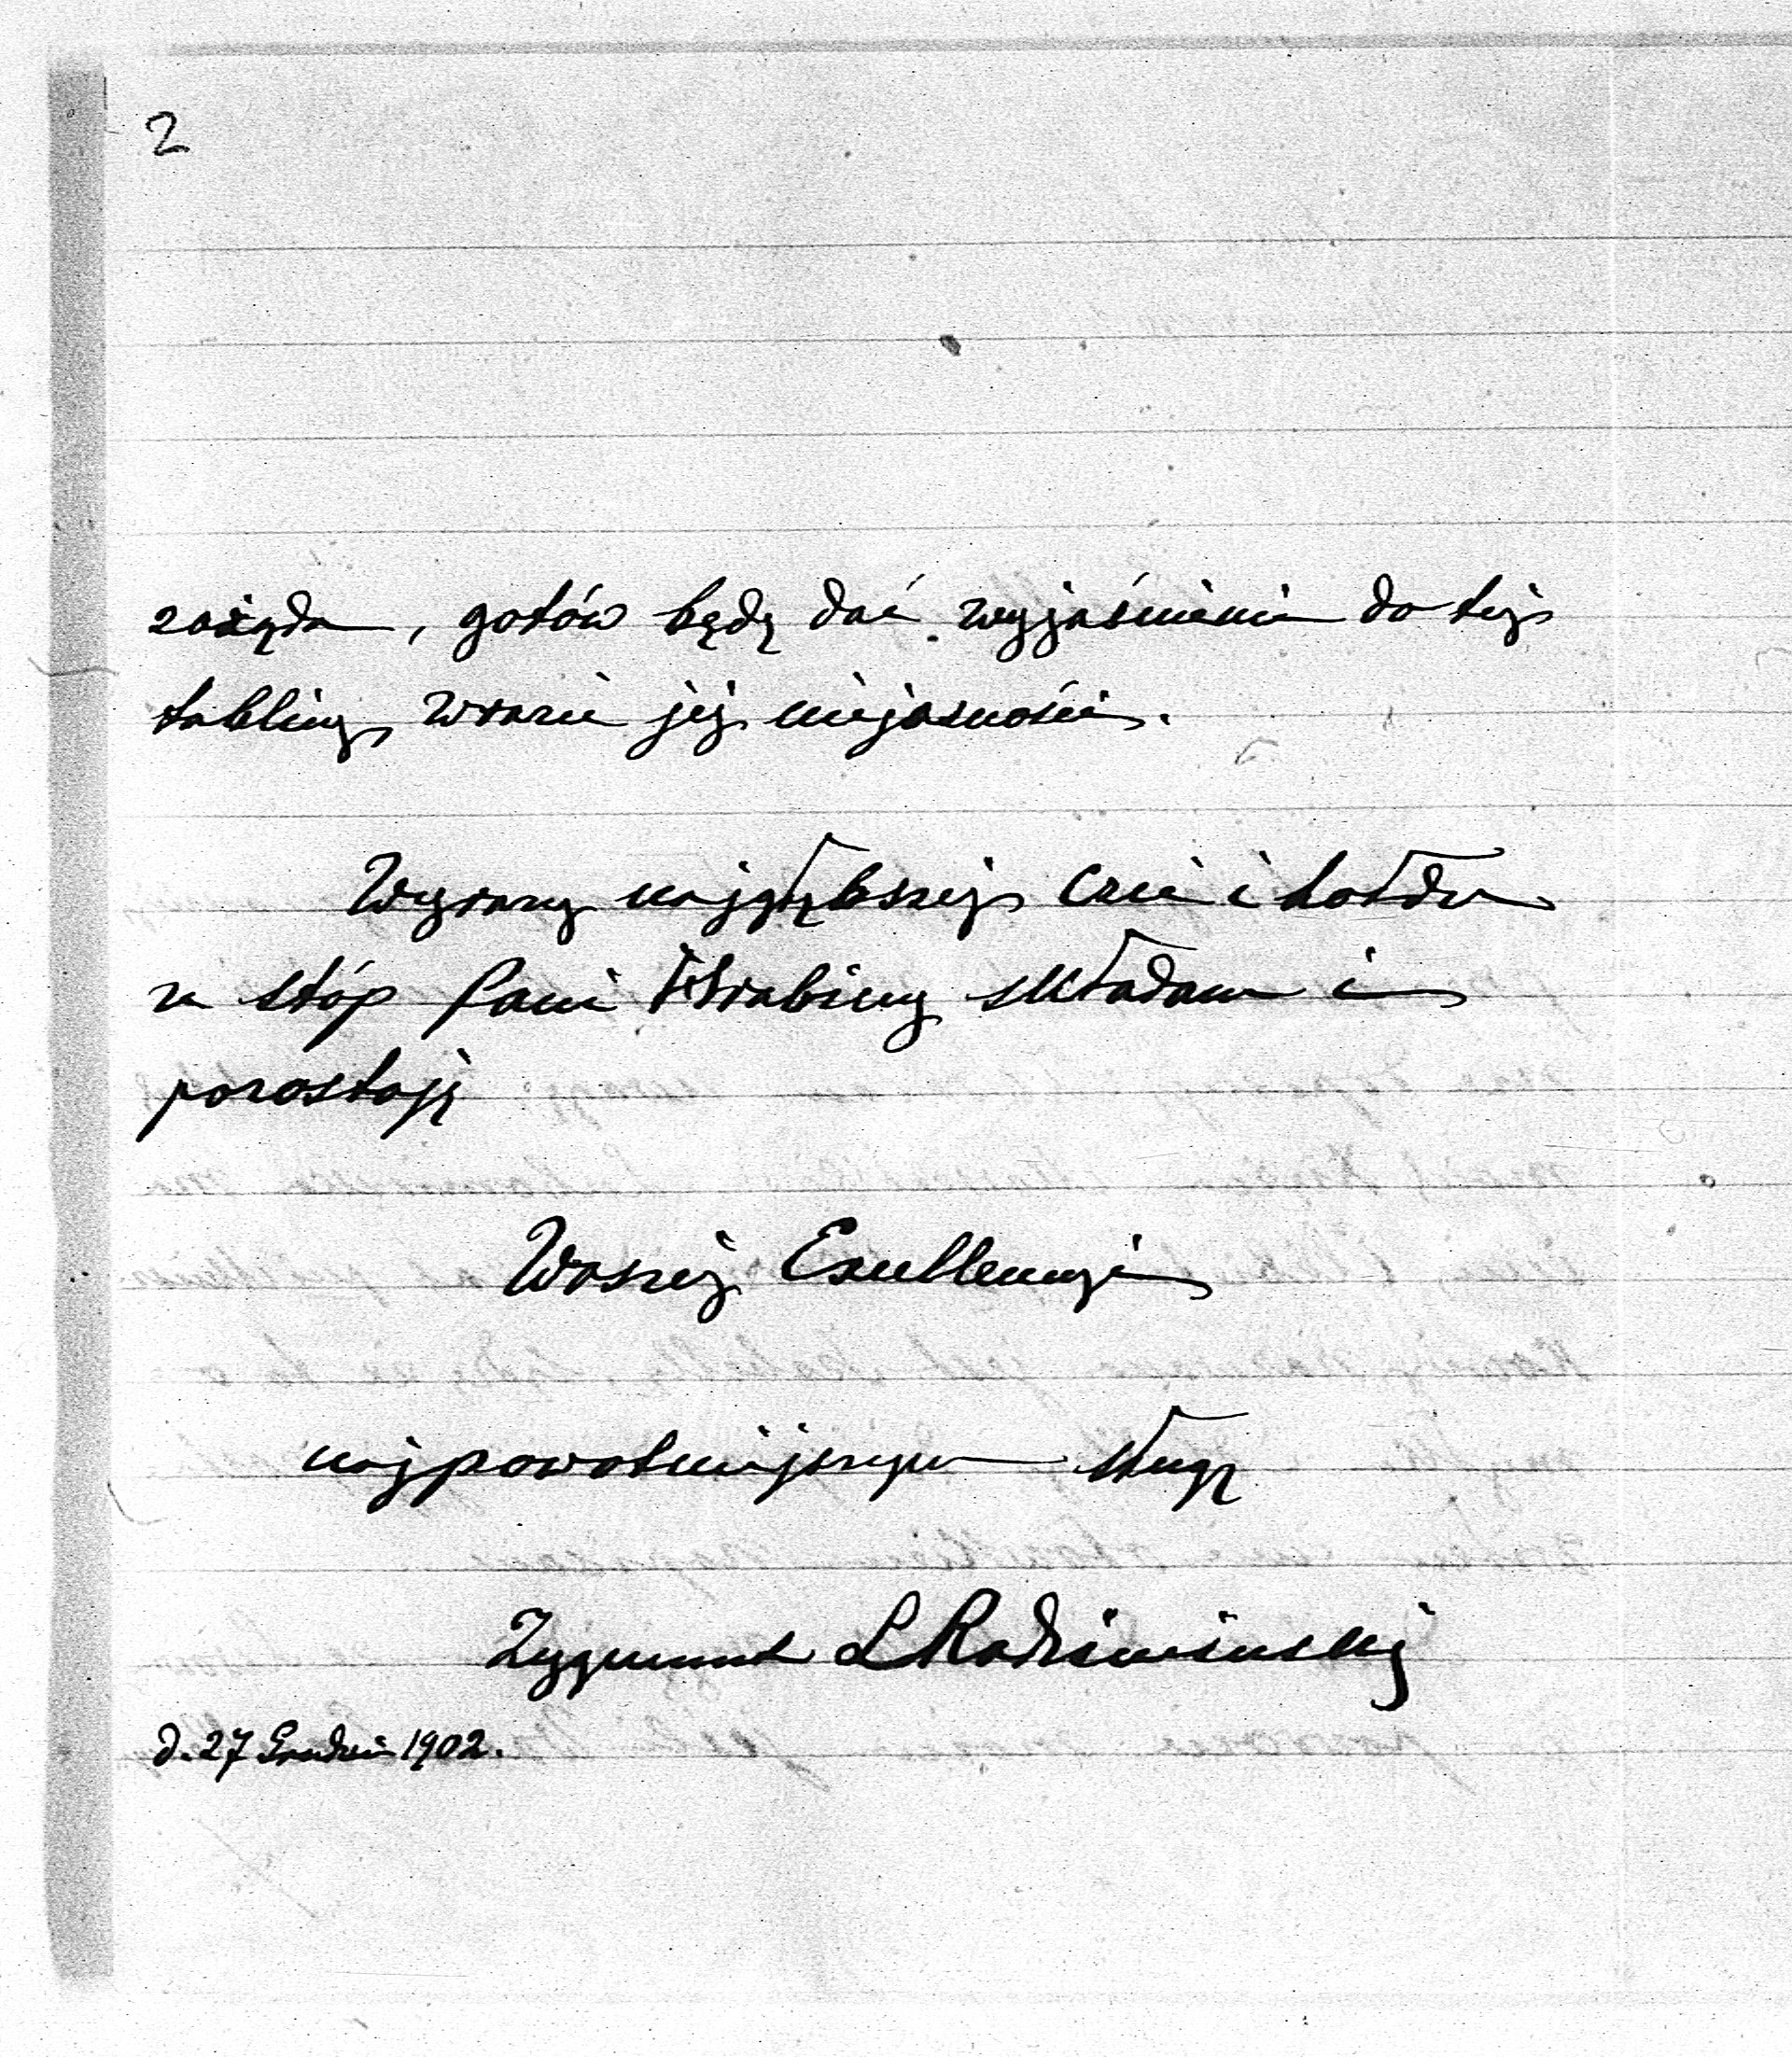 2
zażąda, gotów będę dać wyjaśnienia do tej
tablicy w razie jej niejasności.
Wyrazy najgłębszej czci i hołdu
u stóp Pani Hrabiny składam i
pozostaję
Waszej Excellencyi
najpowolniejszym sługą
Zygmunt L Radzimiński
d. 27 Grudnia 1902.